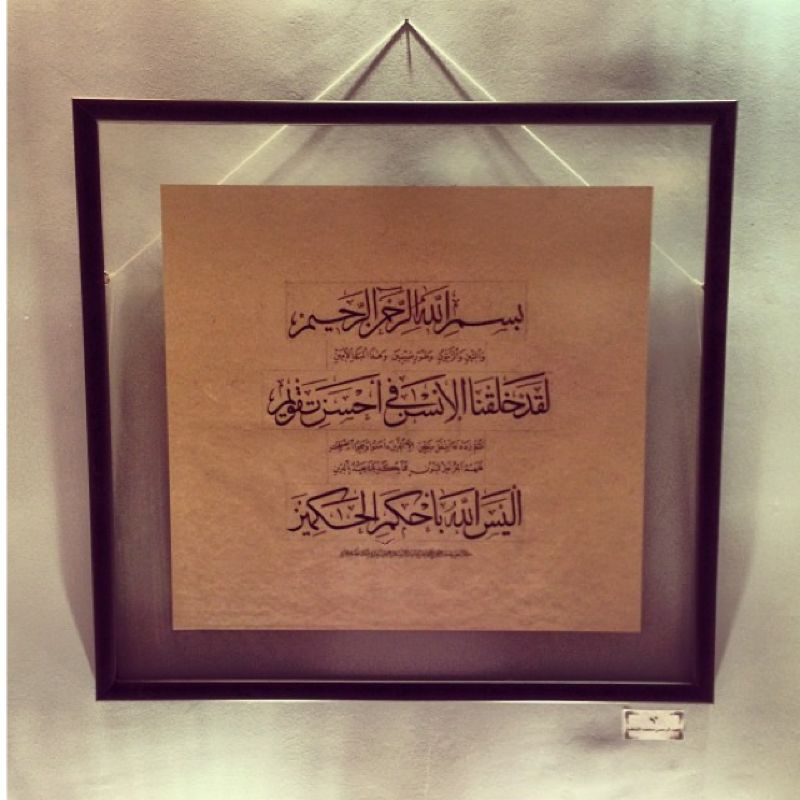 بسم الله الرحمن الرحيم
والتين والزيتون وطور سينين وهذا البلد الأمين
لقد خلقنا الإنسن في أحسن تقويم
ثم رددنه أسفل سفلين إلا الذين ءامنوا وعملوا الصلحت
فلهم أجر غير ممنون فما يكذبك بعد بالدين
أليس الله بأحكم الحكمين